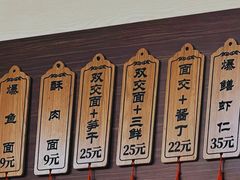 爆鱼面
9元
酥肉面
9元
双交面+笋干
25元
双交面+三鲜
25元
面交+酱丁
22元
爆鳝虾仁
35元